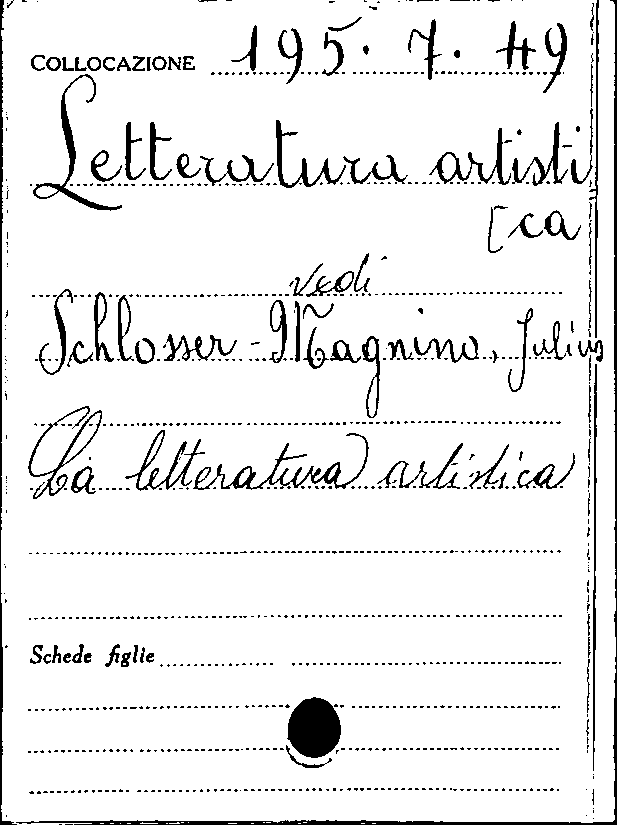 COLLOCAZIONE 195. 7. 49
Letteratura artisti
[ca
vedi
Schlosser-Magnino, Julius
La letteratura artistica
Schede figlie